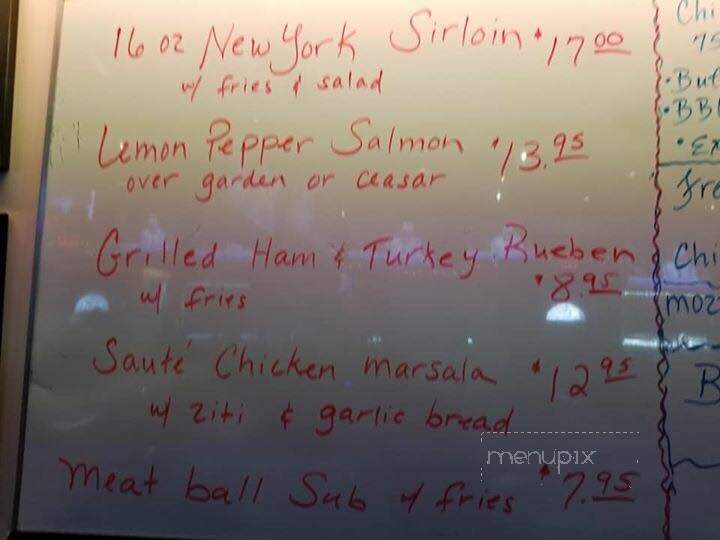 16 oz New York Sirloin $17.00
w/ fries & salad
Lemon Pepper Salmon $13.95
over garden or ceasar
Grilled Ham & Turkey Rueben
w/ fries $8.95
Sauté Chicken marsala $12.95
w/ ziti & garlic bread
meat ball Sub w/ fries $7.95
menupix
Chi
75
•But
•BB
•Ex
fre
Chi
moz
B